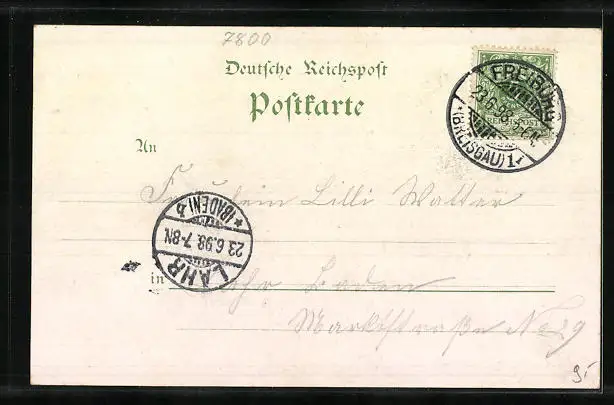 7800
Deutsche Reichspost
Postkarte
FREIBURG
23.6.98.
*(BREISGAU)1*
An
Fräulein Lilli Walter
LAHR
23.6.98.7-8N.
*(BADEN)b
in Lahr Baden
Marktstraße No 29